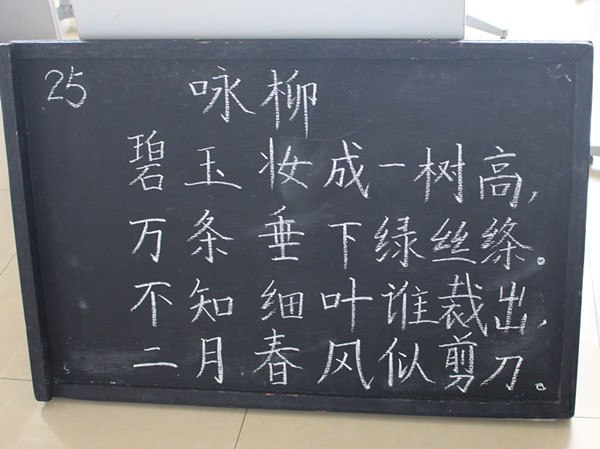 25
咏柳
碧玉妆成一树高，
万条垂下绿丝绦。
不知细叶谁裁出，
二月春风似剪刀。